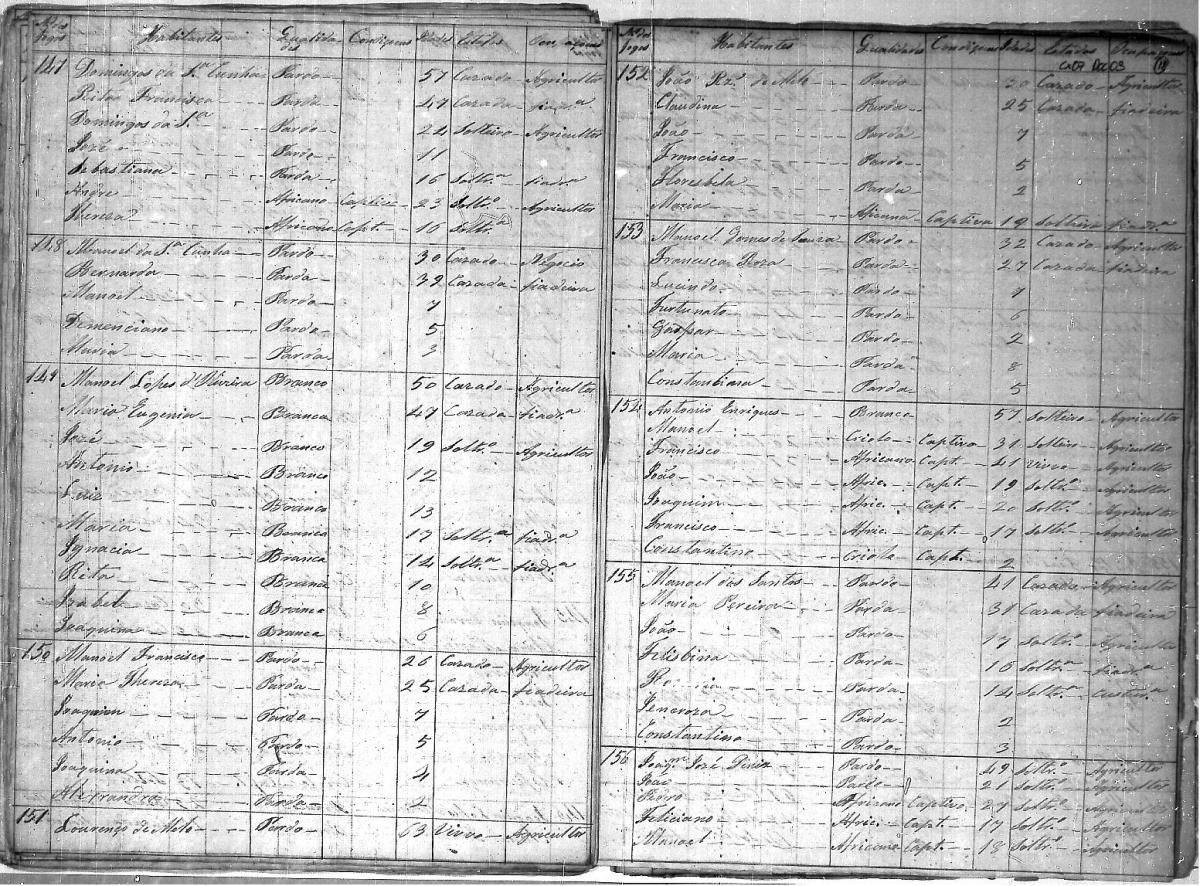 Nos dos Fogos Habitantes Qualidades Condiçoens Idades Estados Ocupaçoens
147 Domingos da Sa. Cunha Pardo 57 Cazado Agricultor
Rita Francisca Parda 47 Cazada fiadra.
Domingos da Sa. Pardo 24 Solteiro Agricultor
José Pardo 11
Sebastiana Parda 16 Soltra. fiadra.
Andre Africano Captivo 23 Soltro. Agricultor
Thereza Africana Capt. 16 Soltra.
148 Manoel da Sa. Cunha Pardo 30 Cazado Negocio
Bernarda Parda 32 Cazada fiadeira
Manoel Pardo 7
Demenciano Pardo 5
Maria Parda 3
149 Manoel Lopes d'Oliveira Branco 50 Cazado Agricultor
Maria Eugenia Branca 47 Cazada fiadra.
José Branco 19 Soltro. Agricultor
Antonio Branco 12
Luiz Branco 13
Maria Branca 17 Soltra. fiadra.
Ignacia Branca 14 Soltra. fiadra.
Rita Branca 10
Izabel Branca 8
Joaquina Branca 6
150 Manoel Francisco Pardo 26 Cazado Agricultor
Maria Thereza Parda 25 Cazada fiadeira
Joaquim Pardo 7
Antonio Pardo 5
Joaquina Parda 4
Alexandra Parda 2
151 Lourenço de Melo Pardo 63 Viuvo Agricultor
Nos dos Fogos Habitantes Qualidades Condiçoens Idades Estados Ocupaçoens
CX07 DOC03 18
152 João Rz. de Melo Pardo 30 Cazado Agricultor
Claudina Parda 25 Cazada fiadeira
João Pardo 7
Francisco Pardo 5
Florisbela Parda 2
Maria Africana Captiva 19 Solteira fiadra.
153 Manoel Gomes de Souza Pardo 32 Cazado Agricultor
Francisca Roza Parda 27 Cazada fiadeira
Lucindo Pardo 7
Furtunato Pardo 6
Gaspar Pardo 2
Maria Parda 8
Constantina Parda 5
154 Antonio Enriques Branco 57 Solteiro Agricultor
Manoel Criolo Captivo 31 Solteiro Agricultor
Francisco Africano Capt. 41 Viuvo Agricultor
João Afric. Capt. 19 Soltro. Agricultor
Joaquim Afric. Capt. 20 Soltro. Agricultor
Francisco Afric. Capt. 17 Soltro. Agricultor
Constantino Criolo Capt. 2
155 Manoel dos Santos Pardo 41 Cazado Agricultor
Maria Pereira Parda 31 Cazada fiadeira
João Pardo 17 Soltro. Agricultor
Felisbina Parda 16 Soltra. fiadra.
Parda 14 Soltra.
Jeneroza Parda 2
Constantino Pardo 3
156 Joaqm. José Pardo 49 Soltro. Agricultor
João Pardo 21 Soltro. Agricultor
Pedro Africano Captivo 27 Soltro. Agricultor
Feliciano Afric. Capt. 17 Soltro. Agricultor
Manoel Africano Capt. 18 Soltro. Agricultor